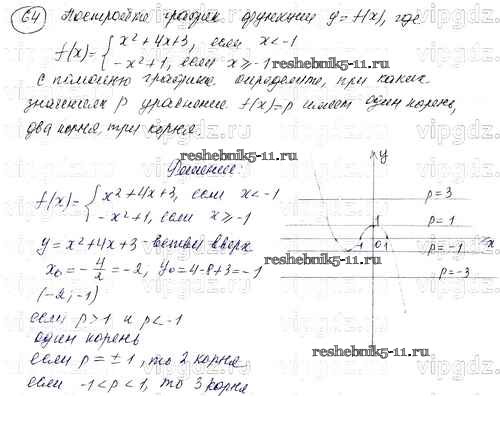 64 Постройка график функции y = f(x), где
f(x) = { x² + 4x + 3, если x < -1
-x² + 1, если x ≥ -1
С помощью графика определите, при каких
значениях P уравнение f(x) = p имеет один корень,
два корня, три корня.
reshebnik5-11.ru
Решение:
f(x) = { x² + 4x + 3, если x < -1
-x² + 1, если x ≥ -1
y = x² + 4x + 3 - ветви вверх
x₀ = -4/2 = -2, y₀ = 4-8+3 = -1
(-2; -1)
если p > 1 и p < -1
один корень
если p = ±1, то 2 корня
если -1 < p < 1, то 3 корня
reshebnik5-11.ru
y
p = 3
1
p = 1
-1 0 1
x
p = -1
p = -3
reshebnik5-11.ru
vipgdz.ru